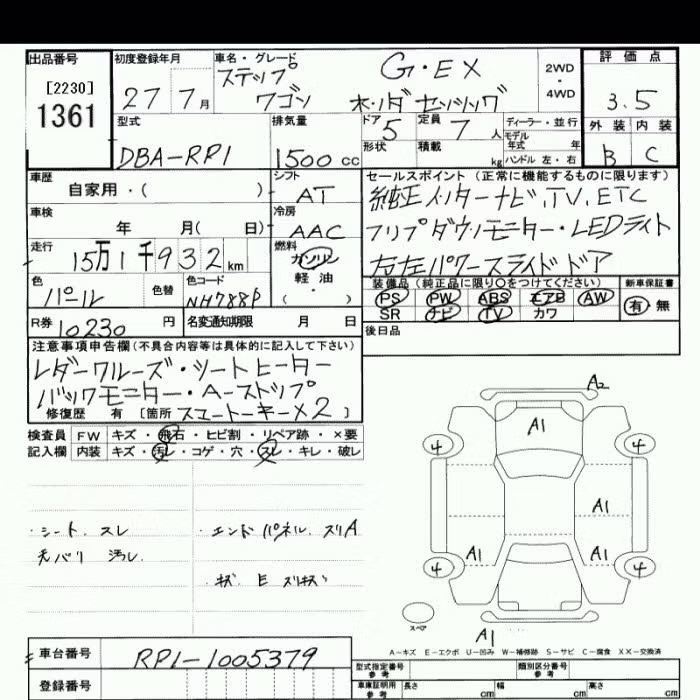 出品番号 初度登録年月 車名・グレード 評価点
[2230] ステップ G・EX 2WD
1361 27 7月 ワゴン ホンダセンシング ・4WD 3.5
型式 排気量 ドア 5 定員 7人 ディーラー・並行 外装 内装
DBA-RP1 1500cc 形状 積載 kg モデル年式 年 ハンドル 左・右 B C
車歴 シフト セールスポイント (正常に機能するものに限ります)
自家用・( ) AT 純正インターナビ、TV、ETC
車検 冷房 フリップダウンモニター・LEDライト
年 月( 日) AAC
走行 燃料 右左パワースライドドア
15万1千932km ガソリン
色 色替 色コード 軽油 装備品 (純正品に限り○をつけてください) 新車保証書
パール NH788P ・( ) PS PW ABS エアB AW 有・無
SR ナビ TV カワ
R券 10230円 名変通知期限 月 日 後日品
注意事項申告欄(不具合内容等は具体的に記入して下さい)
レダークルーズ・シートヒーター
バックモニター・A-ストップ
修復歴 有 [箇所 スマートキー×2 ]
検査員 FW キズ・飛石・ヒビ割・リペア跡・×要
記入欄 内装 キズ・汚レ・コゲ・穴・スレ・キレ・破レ
・シート、スレ ・エンドパネル、スリA
天バリ 汚レ
・キズ、E スリキズ
A2
A1
4 4
A1
A1 A1
4 4
スペア
A1
A-キズ E-エクボ U-凹み W-補修跡 S-サビ C-腐食 XX-交換済
車台番号 RP1-1005379 型式指定番号 参考 類別区分番号 参考
登録番号 車庫証明用 参考 長さ cm 幅 cm 高さ cm